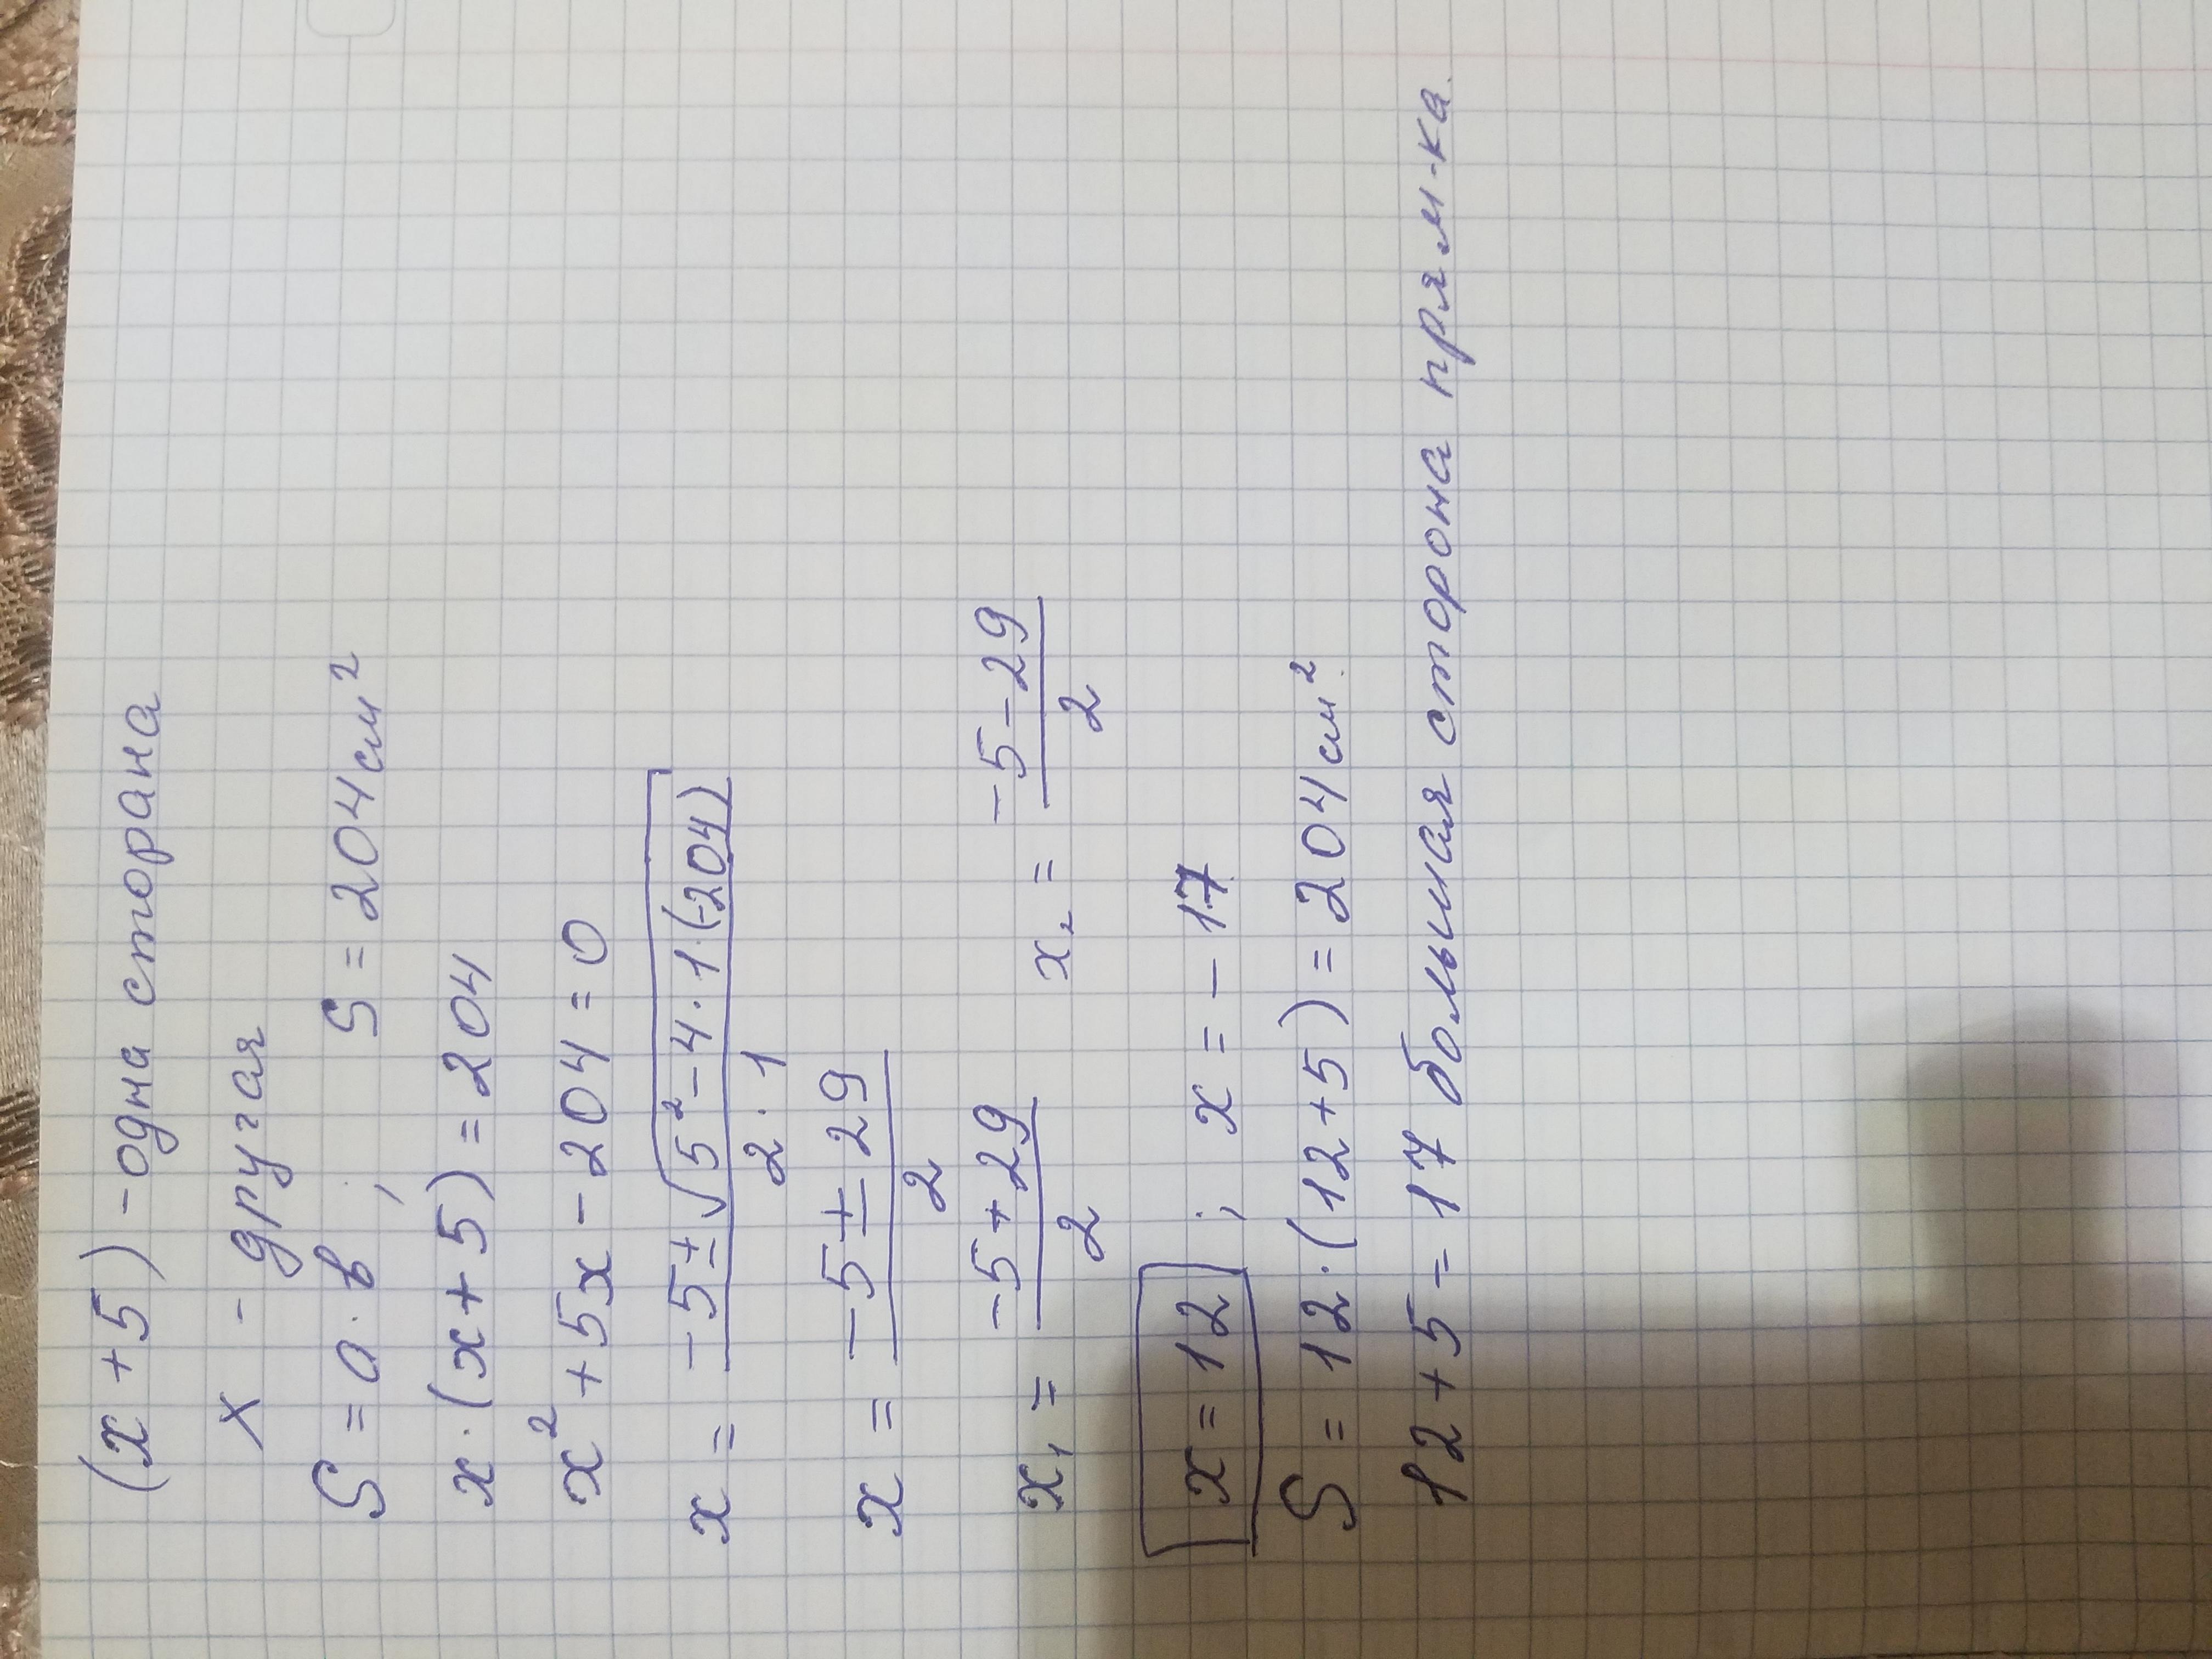 (x+5) - одна сторана
x - другая
S = a · b ; S = 204 см²
x · (x+5) = 204
x² + 5x - 204 = 0
x = (-5 ± √(5² - 4 · 1 · (-204))) / (2 · 1)
x = (-5 ± 29) / 2
x₁ = (-5 + 29) / 2 x₂ = (-5 - 29) / 2
x = 12 ; x = - 17
S = 12 · (12+5) = 204 см²
12 + 5 = 17 большая сторона прям-ка.